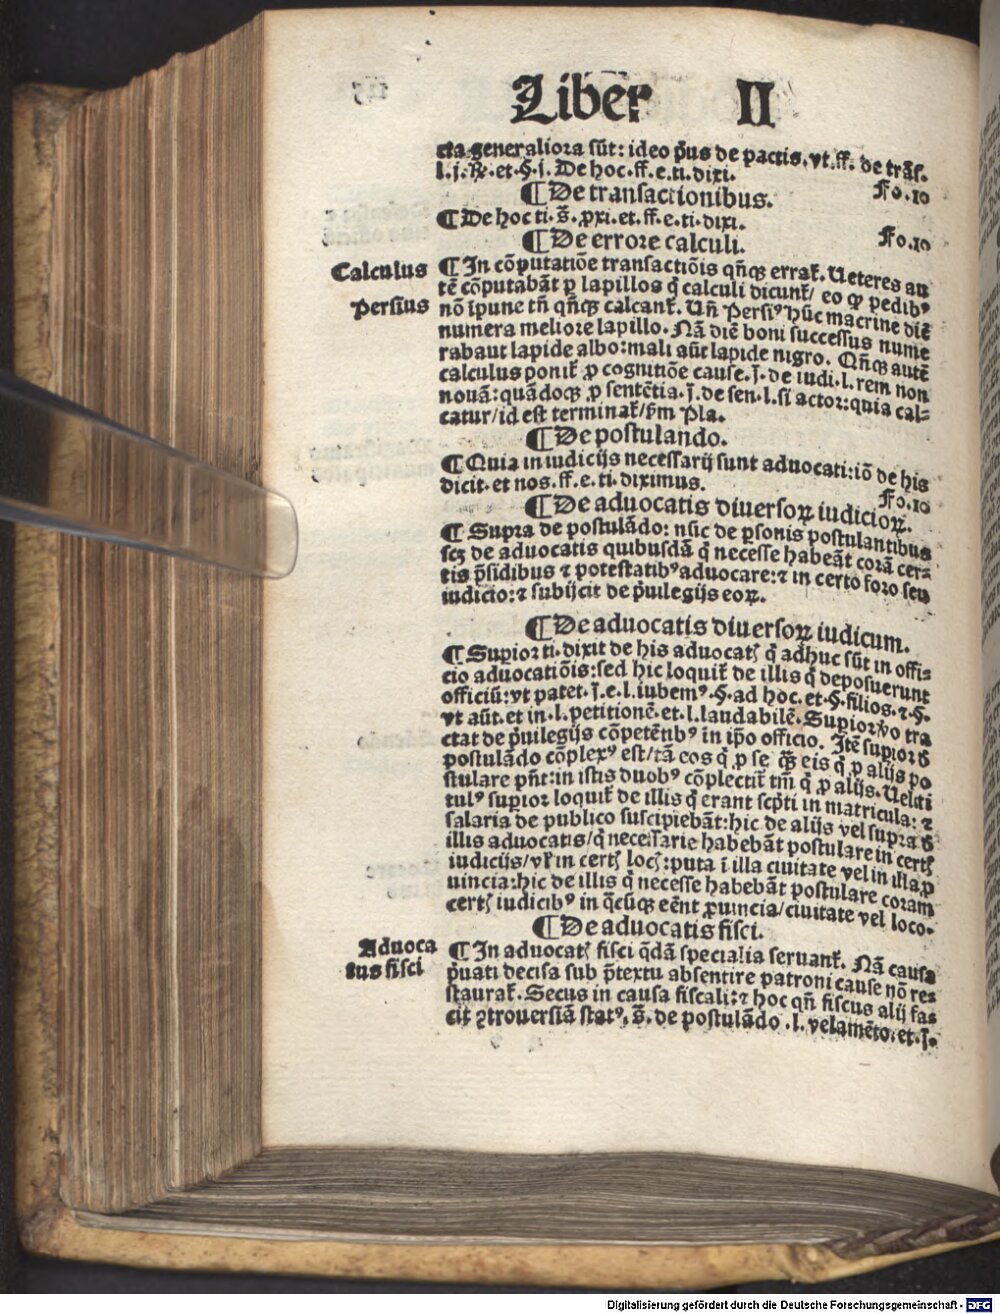 Liber II
cta generaliora sūt: ideo p̄us de pactis. vt. ff. de trās.
l. j. R̷. et. §. j. De hoc. ff. e. ti. dixi. Fo. 10
¶ De transactionibus.
¶ De hoc ti. s̄. ꝓxi. et. ff. e. ti. dixi.
¶ De errore calculi. Fo. 10
Calculus ¶ In cōputatiōe transactiōis qn̄qꝫ errat̄. Ueteres au
tē cōputabāt ꝑ lapillos q̄ calculi dicunt̄/ eo ꝙ pedibꝰ
Persius nō īpune tn̄ qn̄qꝫ calcant̄. Un̄ Persiꝰ hūc macrine diē
numera meliore lapillo. Nā diē boni successus nume
rabaut lapide albo: mali aūt lapide nigro. Qn̄qꝫ autē
calculus ponit̄ ꝓ cognitiōe cause. j̄. de iudi. l. rem non
nouā: quādoqꝫ ꝓ sentētia. j̄. de sen. l. si actor: quia cal⸗
catur/ id est terminat̄/ s̄m Pla.
¶ De postulando.
¶ Quia in iudicijs necessarij sunt aduocati: iō de his
dicit. et nos. ff. e. ti. diximus. Fo. 10
¶ De aduocatis diuersoꝝ iudicioꝝ.
¶ Supra de postulādo: nūc de ꝑsonis postulantibus
scꝫ de aduocatis quibusdā q̄ necesse habeāt corā cer⸗
tis p̄sidibus ⁊ potestatibꝰ aduocare: ⁊ in certo foro seu
iudicio: ⁊ subijcit de p̄uilegijs eoꝝ.
¶ De aduocatis diuersoꝝ iudicum.
¶ Supior ti. dixit de his aduocatꝭ q̄ adhuc sūt in offi⸗
cio aduocatiōis: sed hic loquit̄ de illis q̄ deposuerunt
officiū: vt patet. j̄. e. l. iubemꝰ. §. ad hoc. et. §. filios. ⁊. §.
vt aūt. et in. l. petitionē. et. l. laudabilē. Supior v̊o tra
ctat de p̄uilegijs cōpetētibꝰ in ip̄o officio. Itē supior d̄
postulādo cōplexꝰ est/ tā eos q̄ ꝑ se qꝫ eis q̄ ꝑ alijs po
stulare pn̄t: in istis duobꝰ cōplectit̄ tm̄ q̄ ꝓ alijs. Uel ti
tulꝰ supior loquit̄ de illis q̄ erant sc̄pti in matricula: ⁊
salaria de publico suscipiebāt: hic de alijs vel supra d̄
illis aduocatis/ q̄ necessarie habebāt postulare in certꝭ
iudicijs/ vl̄ in certꝭ locꝭ: puta ī illa ciuitate vel in illa ꝓ
uincia: hic de illis q̄ necesse habebāt postulare coram
certꝭ iudicibꝰ in q̄cūqꝫ eēnt ꝓuincia/ ciuitate vel loco.
¶ De aduocatis fisci.
Aduoca
tus fisci ¶ In aduocatꝭ fisci q̄dā specialia seruant̄. Nā causa
p̄uati decisa sub p̄textu absentire patroni cause nō res
staurat̄. Secus in causa fiscali: ⁊ hoc qn̄ fiscus alij fas
cit ꝯtrouersiā statꝰ. s̄. de postulādo. l. velamēto. et. j̄.
Digitalisierung gefördert durch die Deutsche Forschungsgemeinschaft - DFG